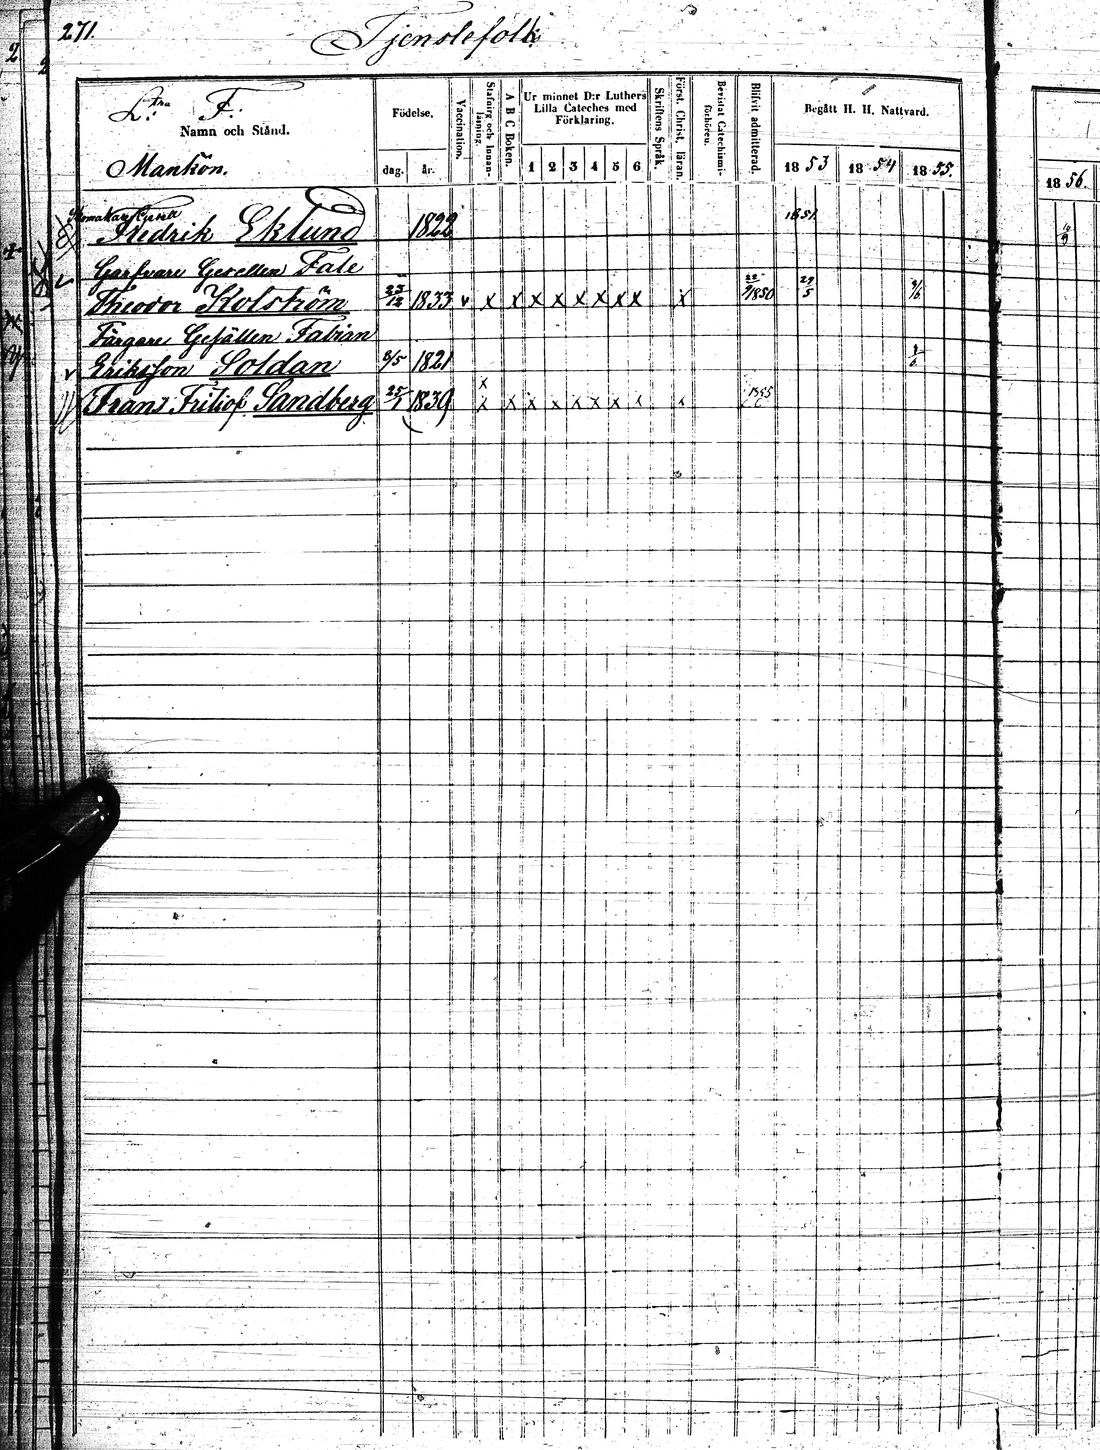 271.
Tjenstefolk
Litt:ra F.
Namn och Stånd.
Mankön.
Födelse.
dag. år.
Vaccination.
Stafning och Innanläsning.
A B C Boken.
Ur minnet D:r Luthers Lilla Cateches med Förklaring.
1 2 3 4 5 6
Skriftens Språk.
Först. Christ. läran.
Bevistat Catechismiförhören.
Blifvit admitterad.
Begått H. H. Nattvard.
1853 1854 1855.
1856.
Fredrik Eklund 1822 1851
Garfvare Gesellen Fale
Theodor Kolström 23/12 1833 v x x x x x x x x x 1850 29/5
Färgare Gesällen Fabian
Eriksson Soldan 3/5 1821
x
Frans Fritiof Sandberg 25/1 1839 x x x x x x x x x 1855